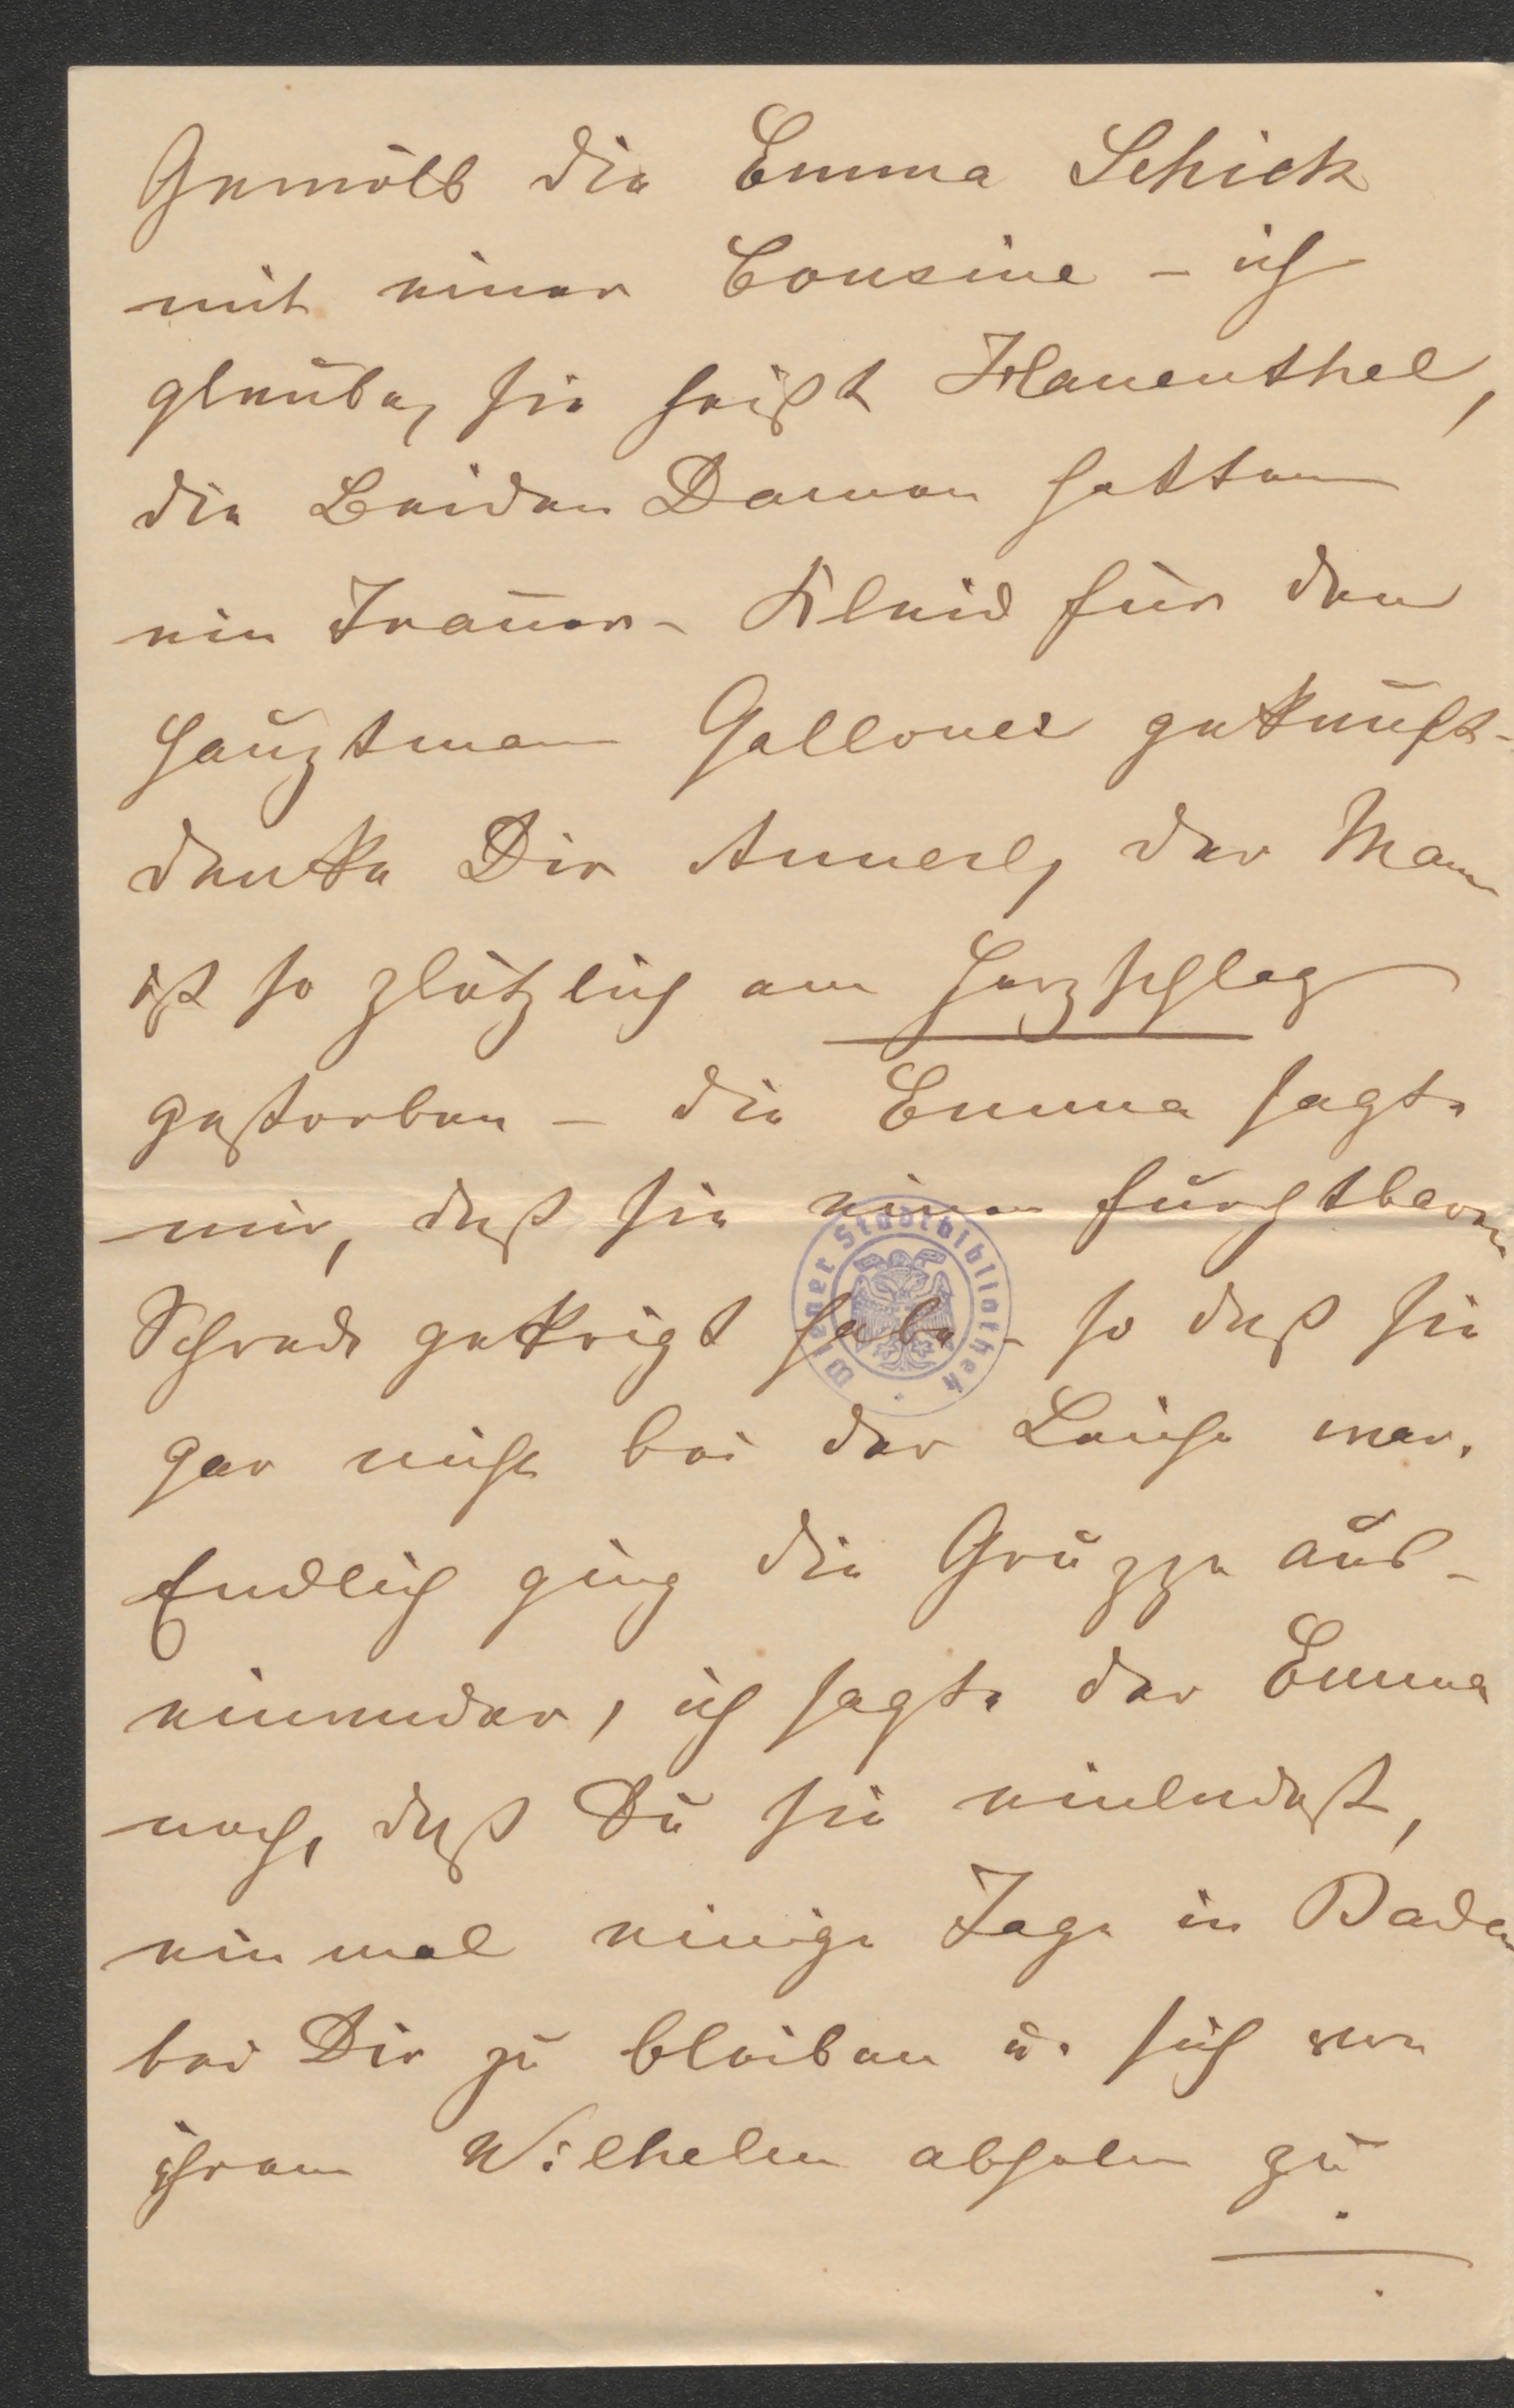 Gewölb die Emma Schick
mit einer Cousine - ich
glaube, sie heißt Hauenthel,
die Beiden Damen hatten
ein Trauer- Kleid für den
Hauptmann gekauft-
denke Dir Annerl, der Mann
ist so plötzlich am Herzschlag
gestorben - die Emma sagte
mir, daß sie einen furchtbaren
Schreck gekrigt habe - so daß sie
gar nicht bei der Leiche war.
Endlich ging die Gruppe aus-
einander, ich sagte der Emma
noch, daß Du sie einladest,
ein mal einige Tage in Baden
bei Dir zu bleiben u. sich von
ihrem Wilhelm abholen zu
Wiener Stadtbibliothek